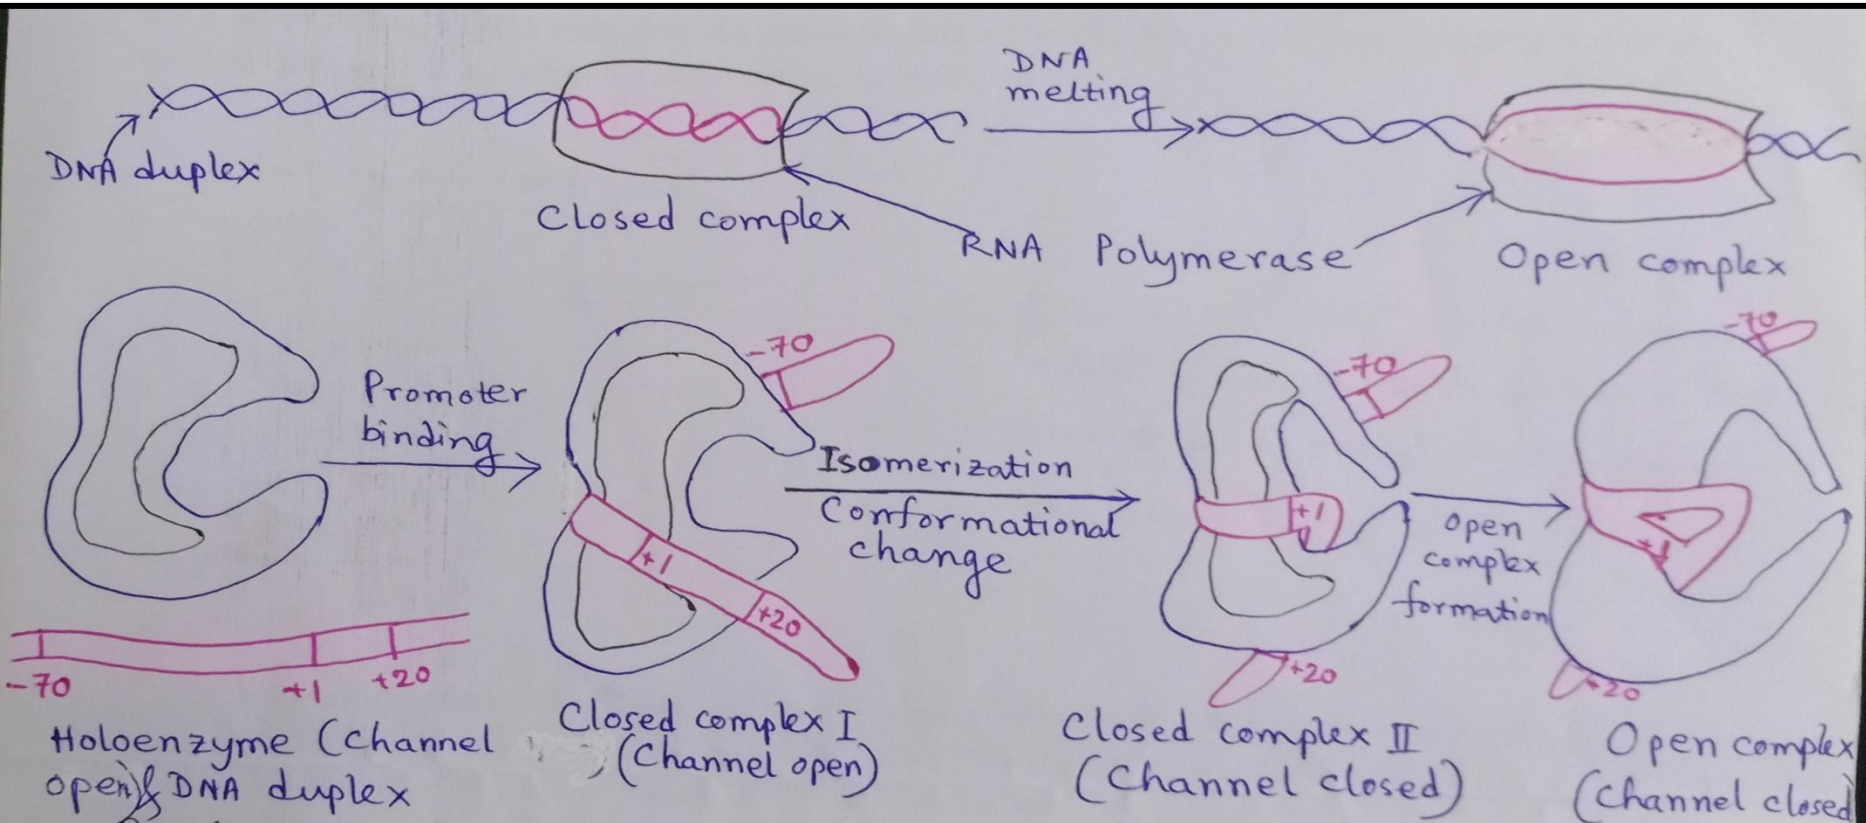 DNA
melting
DNA duplex
Closed complex
RNA Polymerase
Open complex
Promoter
binding
-70
Isomerization
Conformational
change
-70
Open
complex
formation
-70
+1
+20
+1
+20
+1
+20
-70
+1
+20
Holoenzyme (Channel
open) & DNA duplex
Closed complex I
(Channel open)
Closed complex II
(Channel closed)
Open complex
(Channel closed